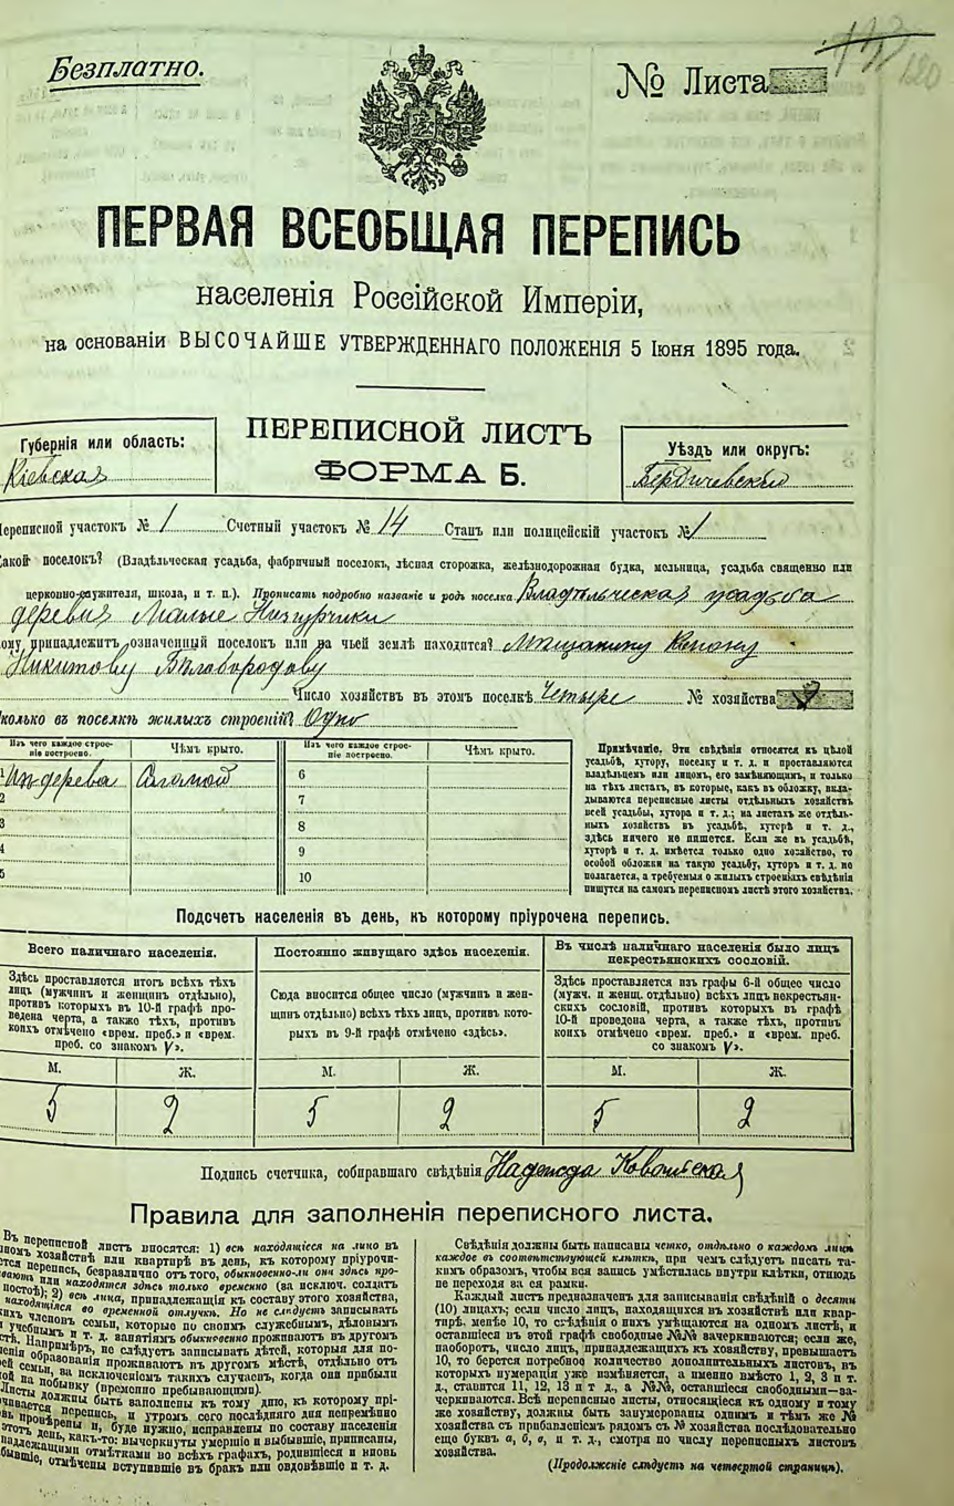 Безплатно.
№ Листа
120
ПЕРВАЯ ВСЕОБЩАЯ ПЕРЕПИСЬ
населенія Россійской Имперіи,
на основаніи ВЫСОЧАЙШЕ УТВЕРЖДЕННАГО ПОЛОЖЕНІЯ 5 Іюня 1895 года.
Губернія или область:
Кіевская
ПЕРЕПИСНОЙ ЛИСТЪ
ФОРМА Б.
Уѣздъ или округъ:
Бердичевскій
Переписной участокъ № 1 Счетный участокъ № 14 Станъ или полицейскій участокъ № 1
Какой поселокъ? (Владѣльческая усадьба, фабричный поселокъ, лѣсная сторожка, желѣзнодорожная будка, мельница, усадьба священно или
церковно-служителя, школа, и т. п.). Прописать подробно названіе и родъ поселка. Владѣльческая усадьба
деревня Малые Низгурчики
Кому принадлежитъ означенный поселокъ или на чьей землѣ находится? Мѣщанину
Никитову Бѣлобородову
Число хозяйствъ въ этомъ поселкѣ Четыре № хозяйства
Сколько въ поселкѣ жилыхъ строеній? Одно
Изъ чего каждое строе-
ніе построено.
Чѣмъ крыто.
Изъ чего каждое строе-
ніе построено.
Чѣмъ крыто.
1 Изъ дерева Соломой 6
2 7
3 8
4 9
5 10
Примѣчаніе. Эти свѣдѣнія относятся къ цѣлой
усадьбѣ, хутору, поселку и т. д. и проставляются
владѣльцемъ или лицомъ, его замѣняющимъ, и только
на тѣхъ листахъ, въ которые, какъ въ обложку, вкла-
дываются переписные листы отдѣльныхъ хозяйствъ
всей усадьбы, хутора и т. д.; на листахъ же отдѣль-
ныхъ хозяйствъ въ усадьбѣ, хуторѣ и т. д.,
здѣсь ничего не пишется. Если же въ усадьбѣ,
хуторѣ и т. д. имѣется только одно хозяйство, то
особой обложки на такую усадьбу, хуторъ и т. д. не
полагается, а требуемыя о жилыхъ строеніяхъ свѣдѣнія
пишутся на самомъ переписномъ листѣ этого хозяйства.
Подсчетъ населенія въ день, къ которому пріурочена перепись.
Всего наличнаго населенія.
Здѣсь проставляется итогъ всѣхъ тѣхъ
лицъ (мужчинъ и женщинъ отдѣльно),
противъ которыхъ въ 10-й графѣ про-
ведена черта, а также тѣхъ, противъ
коихъ отмѣчено «врем. преб.» и «врем.
преб. со знакомъ V».
Постоянно живущаго здѣсь населенія.
Сюда вносится общее число (мужчинъ и жен-
щинъ отдѣльно) всѣхъ тѣхъ лицъ, противъ кото-
рыхъ въ 9-й графѣ отмѣчено «здѣсь».
Въ числѣ наличнаго населенія было лицъ
некрестьянскихъ сословій.
Здѣсь проставляется изъ графы 6-й общее число
(мужч. и женщ. отдѣльно) всѣхъ лицъ некрестьян-
скихъ сословій, противъ которыхъ въ графѣ
10-й проведена черта, а также тѣхъ, противъ
коихъ отмѣчено «врем. преб.» и «врем. преб.
со знакомъ V».
М. Ж. М. Ж. М. Ж.
5 2 5 2 5 2
Подпись счетчика, собиравшаго свѣдѣнія Надежда
Правила для заполненія переписного листа.
Въ переписной листъ вносятся: 1) всѣ находящіеся на лицо въ
хозяйствѣ или квартирѣ въ день, къ которому пріурочи-
перепись, безразлично отъ того, обыкновенно-ли они здѣсь про-
или находятся здѣсь только временно (за исключ. солдатъ
постоѣ); 2) всѣ лица, принадлежащія къ составу этого хозяйства,
находящіяся во временной отлучкѣ. Но не слѣдуетъ записывать
членовъ семьи, которые по своимъ служебнымъ, дѣловымъ
учебнымъ и т. д. занятіямъ обыкновенно проживаютъ въ другомъ
Напримѣръ, не слѣдуетъ записывать дѣтей, которыя для по-
образованія проживаютъ въ другомъ мѣстѣ, отдѣльно отъ
семьи, за исключеніемъ такихъ случаевъ, когда они прибыли
на побывку (временно пребывающими).
Листы должны быть заполнены къ тому дню, къ которому прі-
перепись, и утромъ сего послѣдняго дня непремѣнно
провѣрены и, буде нужно, исправлены по составу населенія
этотъ день, какъ-то: вычеркнуты умершіе и выбывшіе, приписаны,
отмѣтками во всѣхъ графахъ, родившіеся и вновь
отмѣчены вступившіе въ бракъ или овдовѣвшіе и т. д.
Свѣдѣнія должны быть написаны четко, отдѣльно о каждомъ лицѣ
каждое въ соотвѣтствующей клѣткѣ, при чемъ слѣдуетъ писать та-
кимъ образомъ, чтобы вся запись умѣстилась внутри клѣтки, отнюдь
не переходя за ея рамки.
Каждый листъ предназначенъ для записыванія свѣдѣній о десяти
(10) лицахъ; если число лицъ, находящихся въ хозяйствѣ или квар-
тирѣ, менѣе 10, то свѣдѣнія о нихъ умѣщаются на одномъ листѣ, и
оставшіеся въ этой графѣ свободные №№ зачеркиваются; если же,
наоборотъ, число лицъ, принадлежащихъ къ хозяйству, превышаетъ
10, то берется потребное количество дополнительныхъ листовъ, въ
которыхъ нумерація уже измѣняется, а именно вмѣсто 1, 2, 3 и т.
д., ставится 11, 12, 13 и т. д., а №№, оставшіеся свободными—за-
черкиваются. Всѣ переписные листы, относящіеся къ одному и тому
же хозяйству, должны быть занумерованы однимъ и тѣмъ же №
хозяйства съ прибавленіемъ рядомъ съ № хозяйства послѣдовательно
еще буквъ а, б, в, и т. д., смотря по числу переписныхъ листовъ
хозяйства.
(Продолженіе слѣдуетъ на четвертой страницѣ).